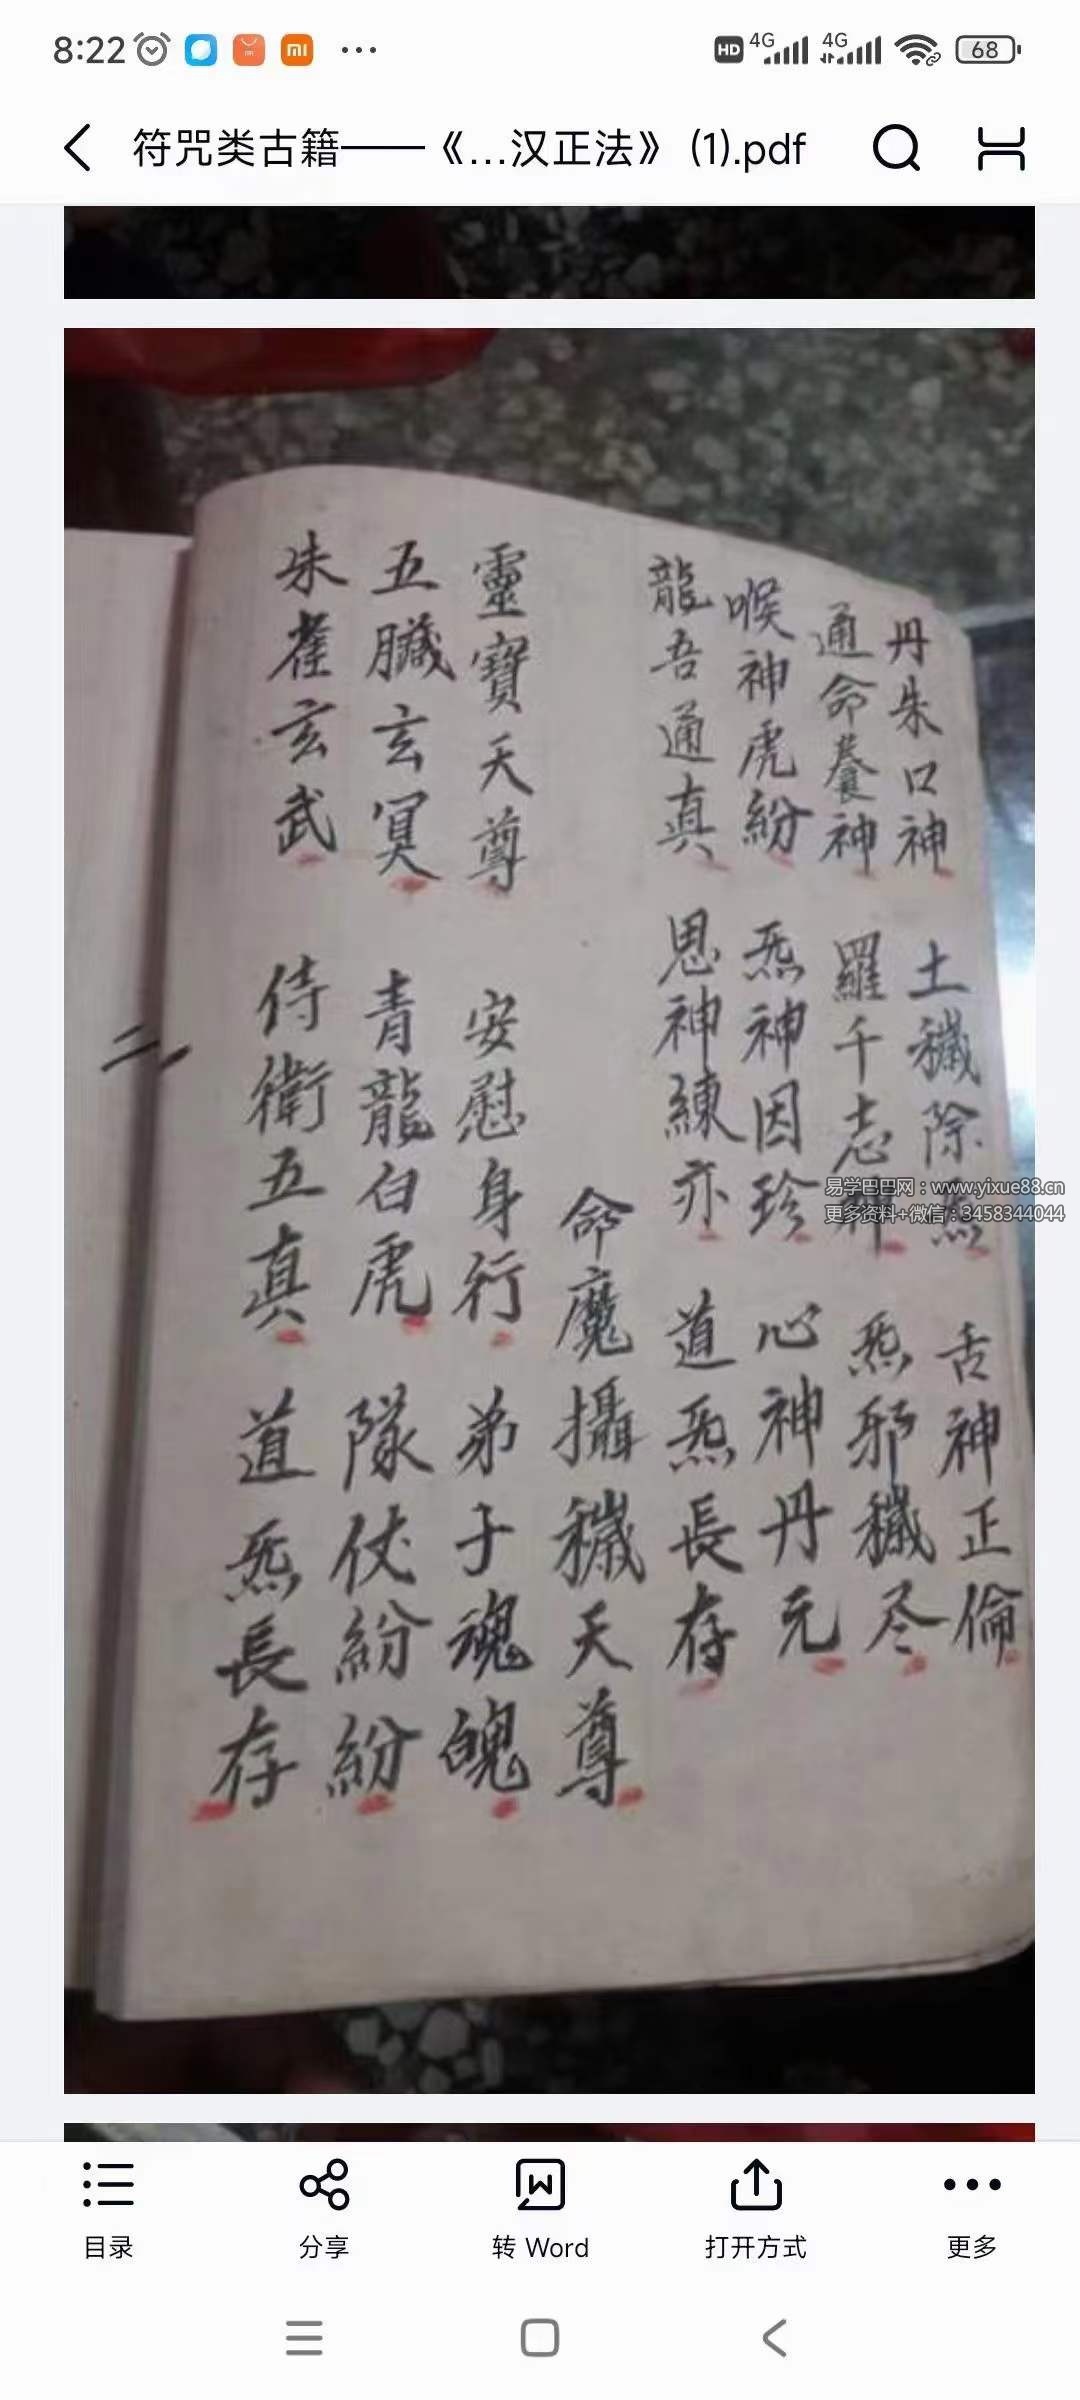 8:22
4G
4G
68
符咒类古籍——《...汉正法》 (1).pdf
丹朱口神 土穢除炁 舌神正倫
通命養神 羅千志神 炁邪穢尽
喉神虎紛 炁神因珍 心神丹元
龍吾通真 思神練亦 道炁長存
命魔攝穢天尊
靈寶天尊 安慰身行 弟子魂魄
五臟玄冥 青龍白虎 隊伏紛紛
朱雀玄武 侍衛五真 道炁長存
二
易学巴巴网:www.yixue88.cn
更多资料+微信:3458344044
目录
分享
转 Word
打开方式
更多